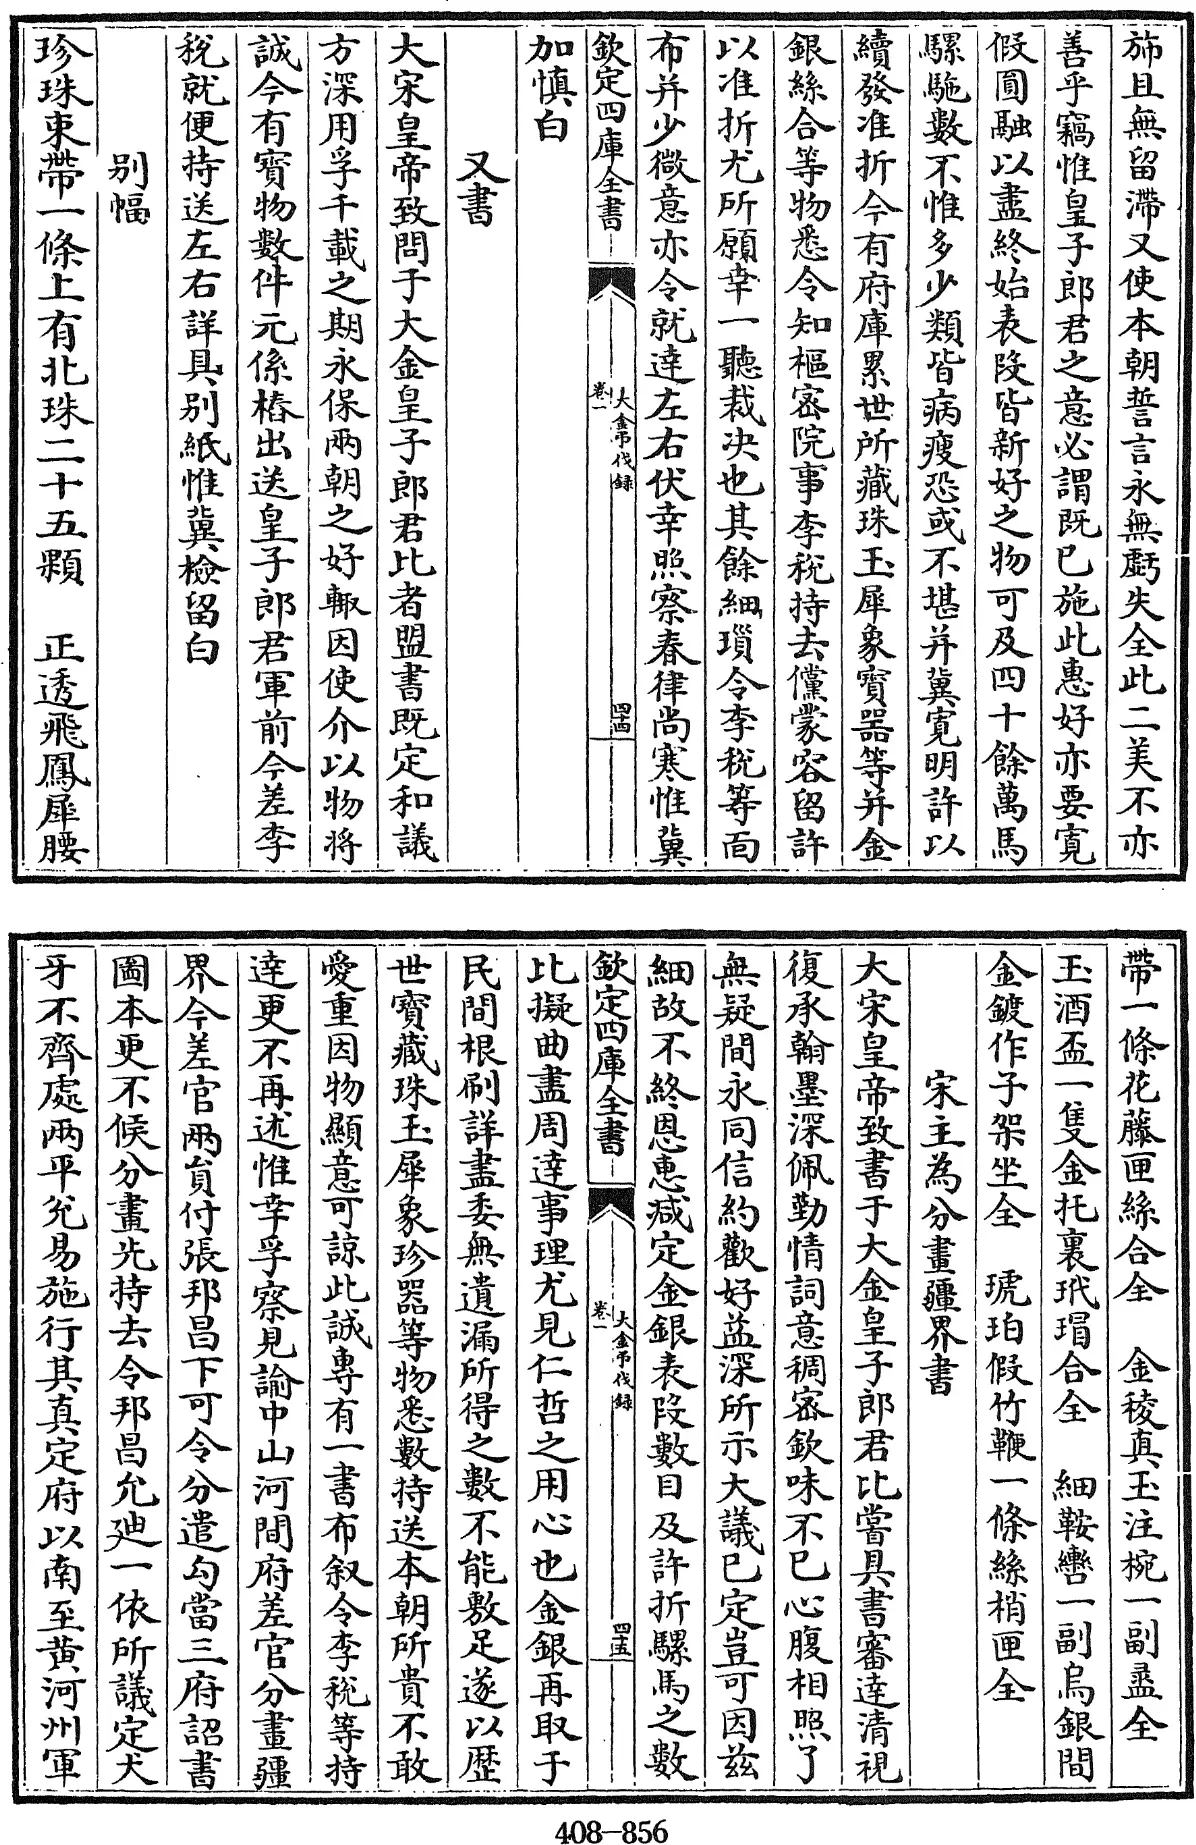 斾且無留滯又使本朝誓言永無虧失全此二美不亦
善乎竊惟皇子郎君之意必謂既已施此惠好亦要寛
假圓融以盡終始表段皆新好之物可及四十餘萬馬
騾駞數不惟多少類皆病瘦恐或不堪并冀寛明許以
續發准折今有府庫累世所藏珠玉犀象寳器等并金
銀絲合等物悉令知樞密院事李梲持去儻蒙容留許
以准折尤所願幸一聽裁決也其餘細瑣令李梲等面
布并少微意亦令就達左右伏幸照察春律尚寒惟冀
欽定四庫全書
大金弔伐録
卷一
四十四
加慎白
又書
大宋皇帝致問于大金皇子郎君比者盟書既定和議
方深用孚千載之期永保兩朝之好輙因使介以物將
誠今有寳物數件元係樁出送皇子郎君軍前今差李
梲就便持送左右詳具别紙惟冀檢留白
别幅
珍珠束帶一條上有北珠二十五顆 正透飛鳳犀腰
帶一條花藤匣絲合全 金稜真玉注椀一副盝全
玉酒盃一隻金托裏玳瑁合全 細鞍轡一副烏銀間
金鍍作子架坐全 琥珀假竹鞭一條絲梢匣全
宋主為分畫疆界書
大宋皇帝致書于大金皇子郎君比嘗具書審達清視
復承翰墨深佩勤情詞意稠密欽味不已心腹相照了
無疑間永同信約歡好益深所示大議已定豈可因兹
細故不終恩惠減定金銀表段數目及許折騾馬之數
欽定四庫全書
大金弔伐録
卷一
四十五
比擬曲盡周達事理尤見仁哲之用心也金銀再取于
民間根刷詳盡委無遺漏所得之數不能敷足遂以歷
世寳藏珠玉犀象珍器等物悉數持送本朝所貴不敢
愛重因物顯意可諒此誠專有一書布叙令李梲等持
達更不再述惟幸孚察見諭中山河間府差官分畫疆
界今差官兩貟付張邦昌下可令分遣勾當三府詔書
圖本更不候分畫先持去令邦昌允廸一依所議定犬
牙不齊處兩平兑易施行其真定府以南至黄河州軍
408-856